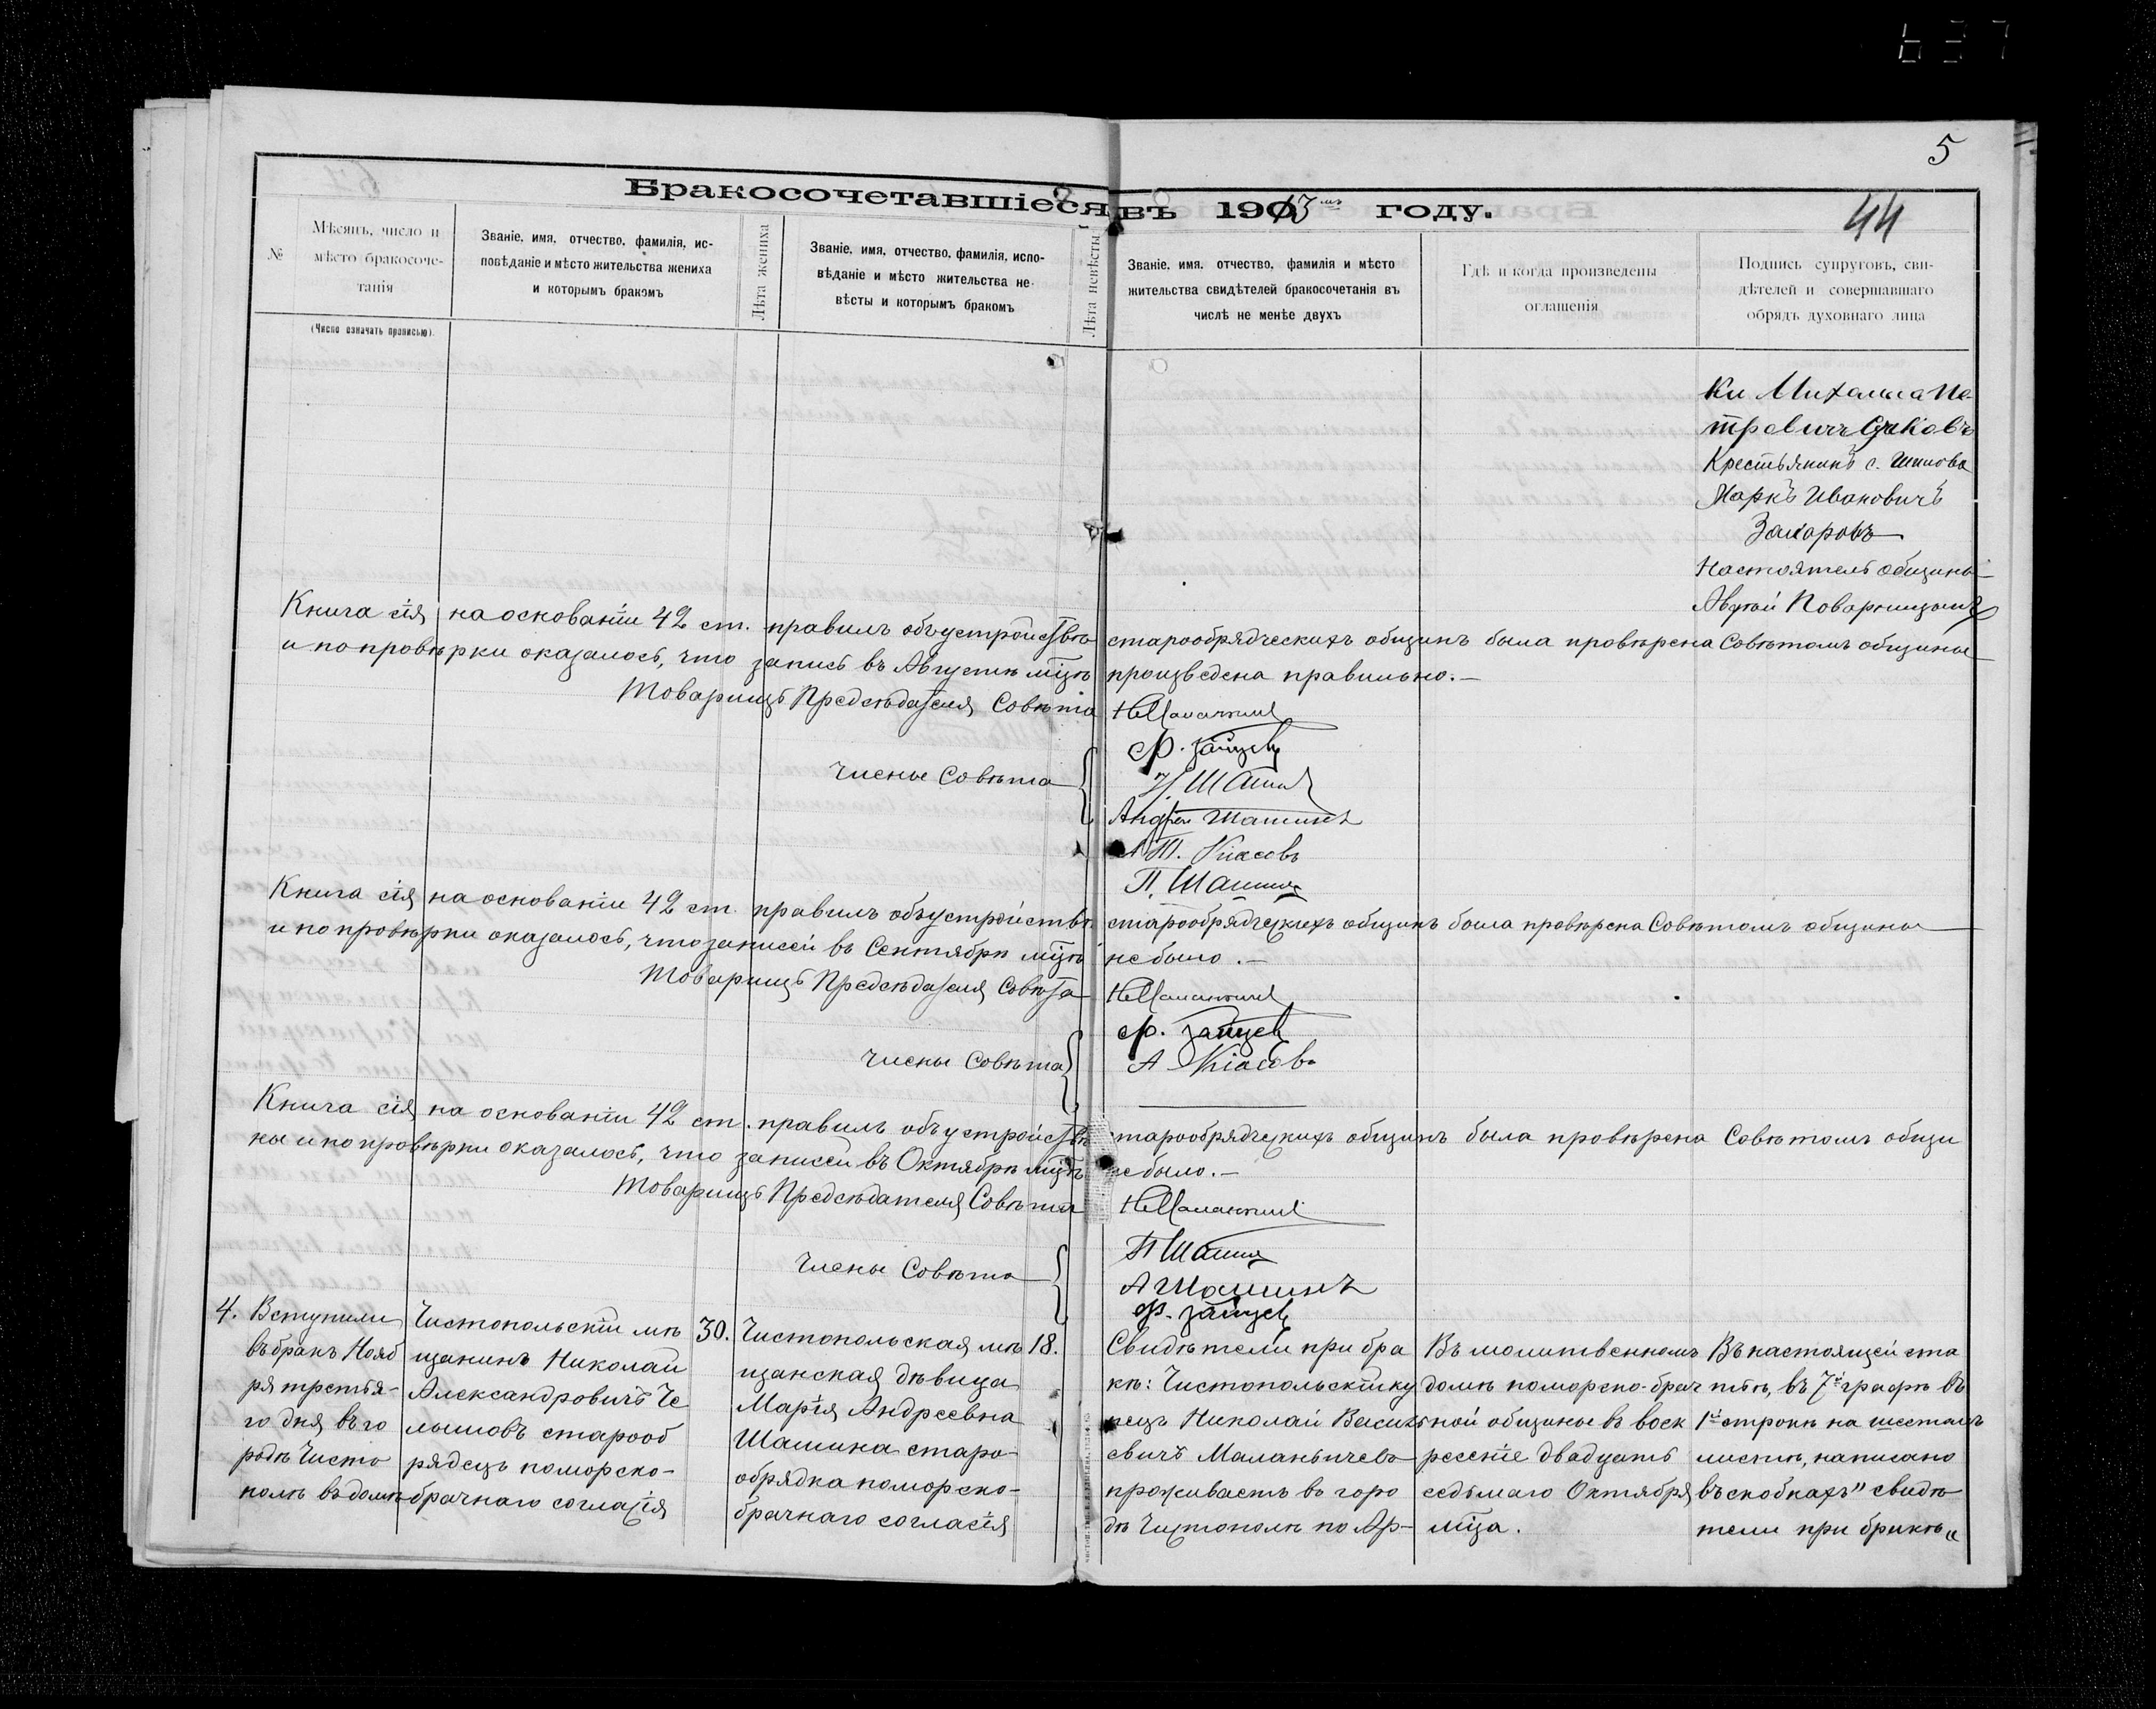 5
44
Бракосочетавшіеся въ 1913мъ году.
№
Мѣсяцъ, число и
мѣсто бракосоче-
танія
(Число означать прописью).
Званіе, имя, отчество, фамилія, ис-
повѣданіе и мѣсто жительства жениха
и которымъ бракомъ
Лѣта жениха
Званіе, имя, отчество, фамилія, испо-
вѣданіе и мѣсто жительства не-
вѣсты и которымъ бракомъ
Лѣта невѣсты
Званіе, имя, отчество, фамилія и мѣсто
жительства свидѣтелей бракосочетанія въ
числѣ не менѣе двухъ
Гдѣ и когда произведены
оглашенія
Подпись супруговъ, сви-
дѣтелей и совершавшаго
обрядъ духовнаго лица
ки Михаила Пе
тровичъ
Крестьянинъ с.
Маркъ Ивановичъ
Захаровъ
Настоятель общины
Поварницынъ
Книга сія на основаніи 42 ст. правилъ объ устройствѣ старообрядческихъ общинъ была провѣрена Совѣтомъ общины
и по провѣрки оказалось, что запись въ Августѣ мцѣ произведена правильно.—
Товарищъ Предсѣдателя Совѣта
Члены Совѣта
Ф. Зайцевъ
Андрей Шашинъ
П. Шашинъ
Книга сія на основаніи 42 ст. правилъ объ устройствѣ старообрядческихъ общинъ была провѣрена Совѣтомъ общины
и по провѣрки оказалось, что записей въ Сентябрѣ мцѣ не было.—
Товарищъ Предсѣдателя Совѣта
Члены Совѣта
Ф. Зайцевъ
Книга сія на основаніи 42 ст. правилъ объ устройствѣ старообрядческихъ общинъ была провѣрена Совѣтомъ общи
ны и по провѣрки оказалось, что записей въ Октябрѣ мцѣ не было.—
Товарищъ Предсѣдателя Совѣта
Члены Совѣта
П Шашинъ
А Шашинъ
Ф. Зайцевъ
4.
Вступили
въ бракъ Нояб
ря третья-
го дня въ го
родѣ Чисто
полѣ въ домѣ
Чистопольскій мѣ
щанинъ Николай
Александровичъ Че
лышовъ старооб
рядецъ поморско-
брачнаго согласія
30.
Чистопольская мѣ
щанская дѣвица
Марія Андреевна
Шашина старо-
обрядка поморско-
брачнаго согласія
18.
Свидѣтели при бра
кѣ: Чистопольскій ку
пецъ Николай Василь
евичъ Маланьичевъ
проживаетъ въ горо
дѣ Чистополѣ по Ар-
Въ молитвенномъ
домѣ поморско-брач
ной общины въ воск
ресеніе двадцать
седьмаго Октября
мца.
Въ настоящей ста
тьѣ, въ 7й графѣ въ
1й строкѣ на шестомъ
листѣ, написано
въ скобкахъ" свидѣ
тели при бракѣ„